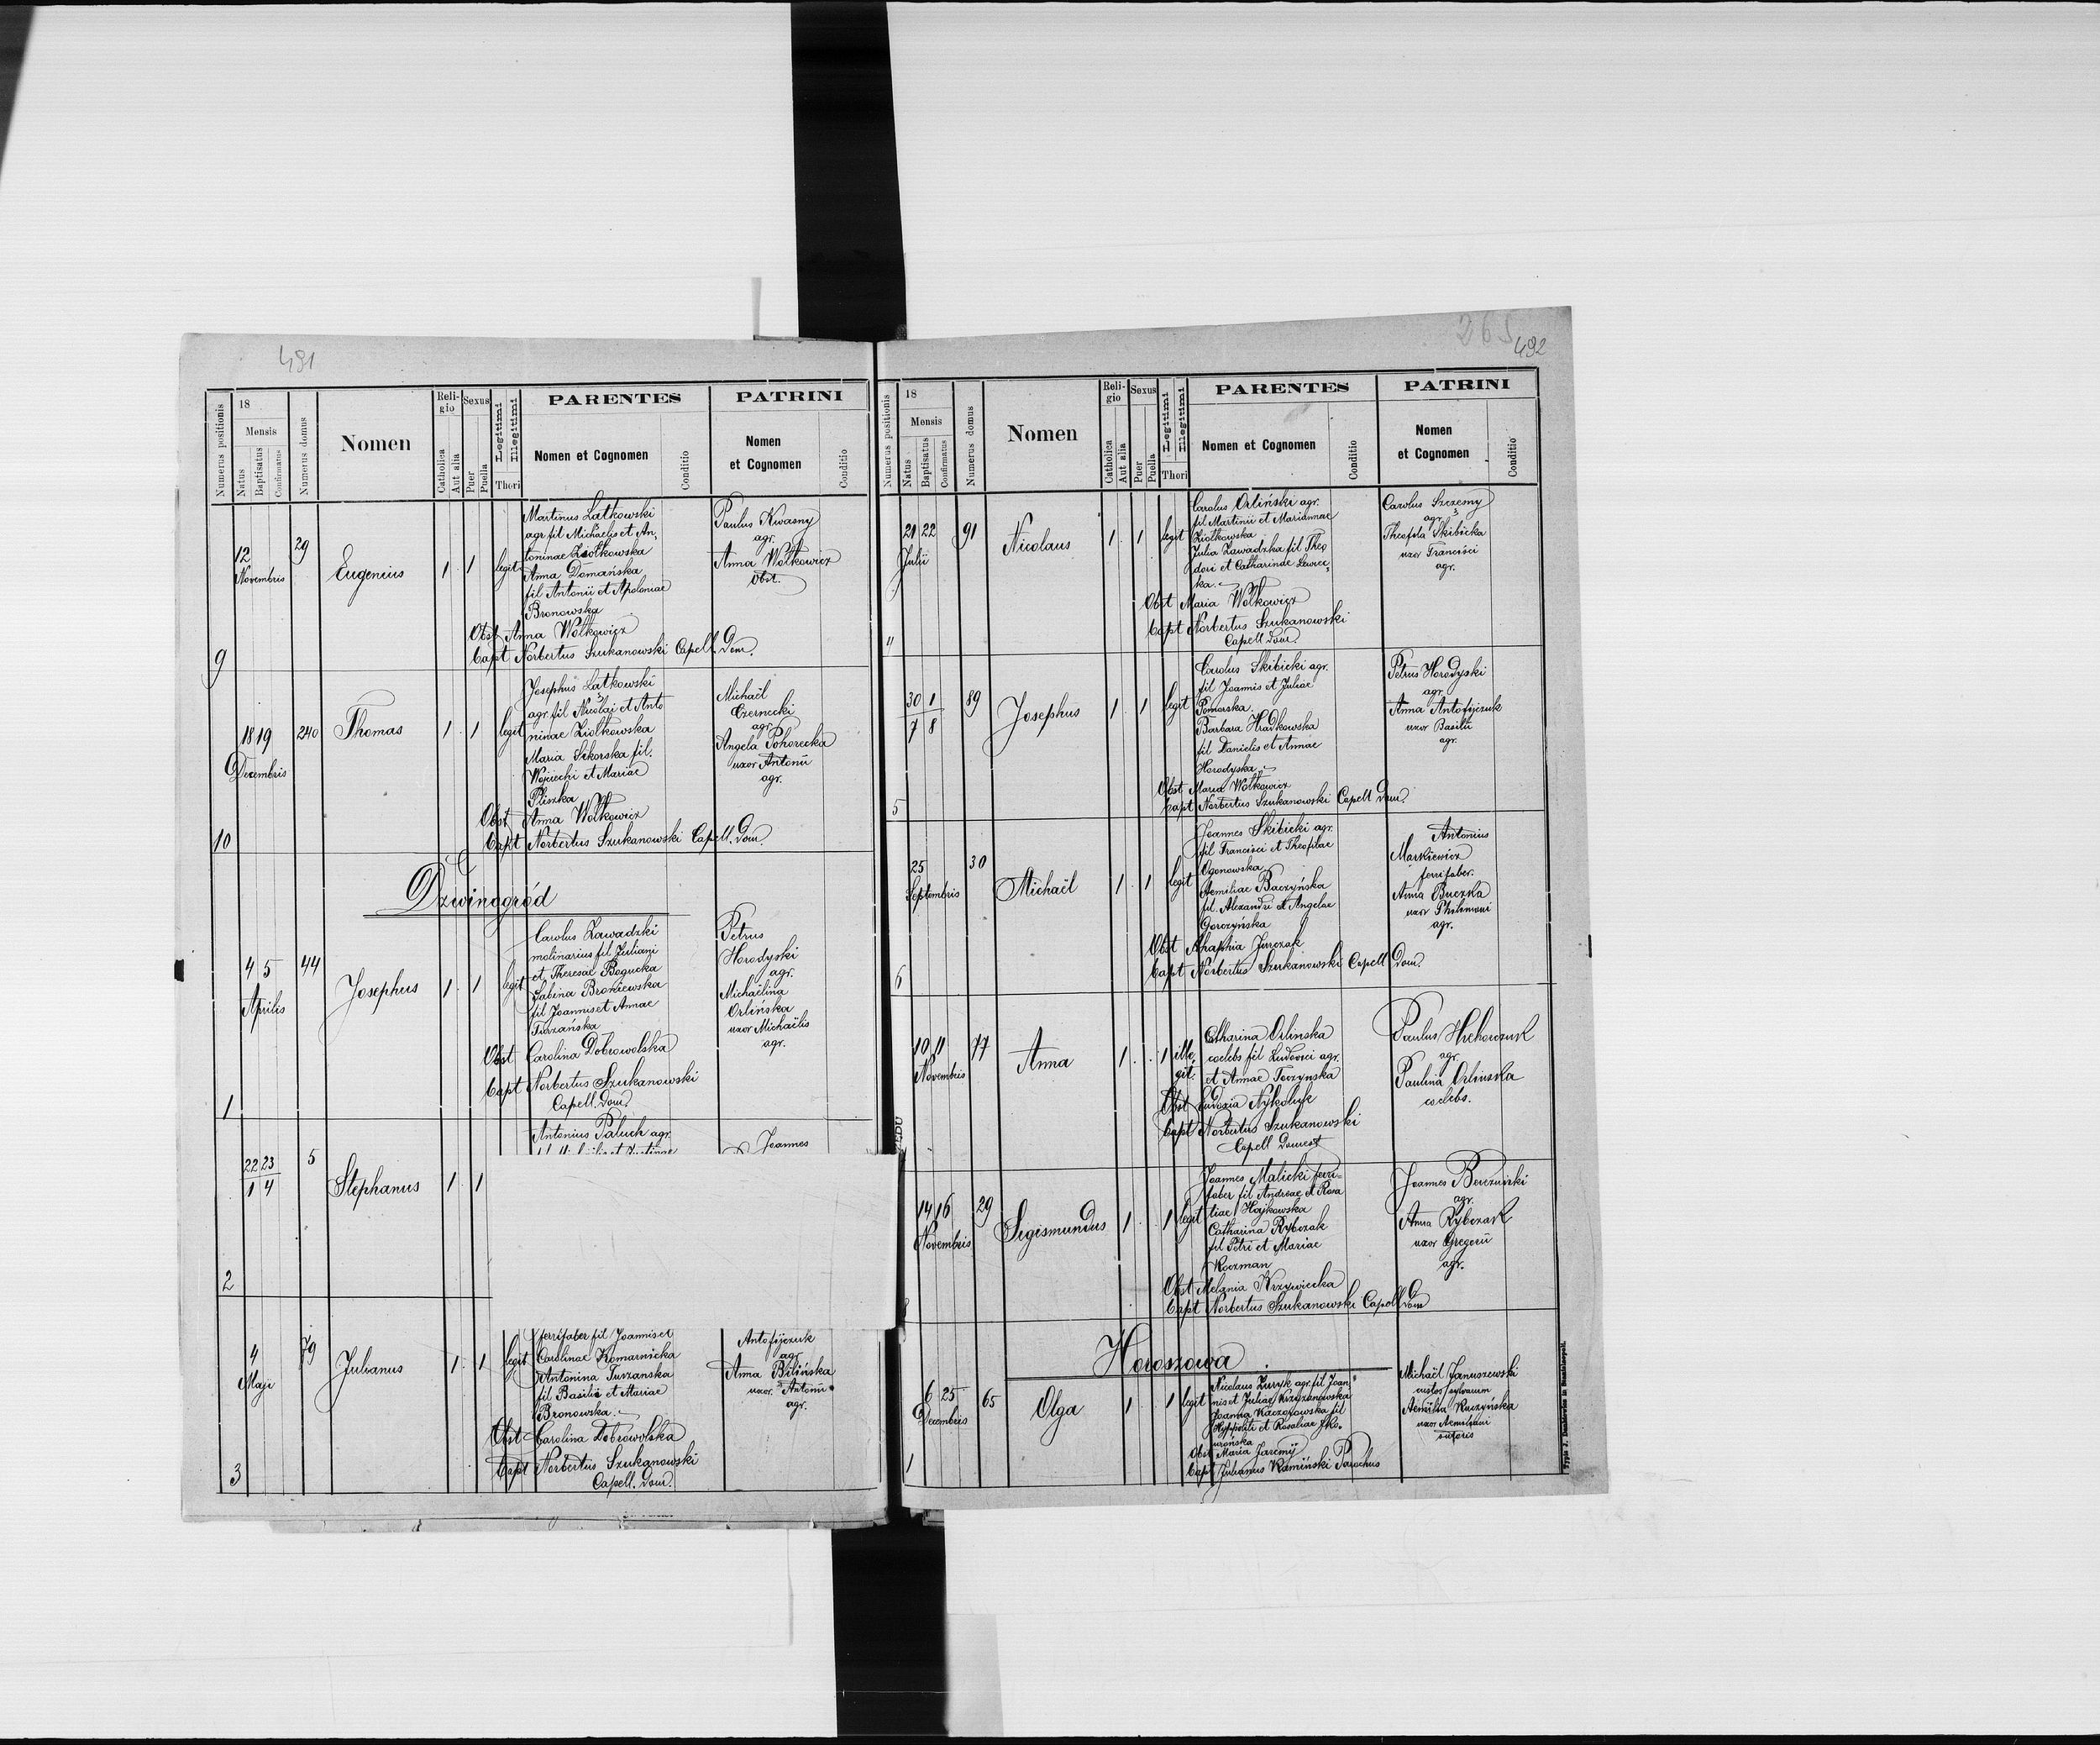 491
Numerus positionis
18
Mensis
Natus
Baptisatus
Confirmatus
Numerus domus
Nomen
Religio
Catholica
Aut alia
Sexus
Puer
Puella
Legitimi
Illegitimi
Thori
PARENTES
Nomen et Cognomen
Conditio
PATRINI
Nomen
et Cognomen
Conditio
9
12
Novembris
29
Eugenius
1 1
legit
Martinus Latkowski
agr fil Michaëlis et An,
toninae Ziołkowska
Anna Domańska
fil Antonii et Apoloniae
Bronowska
Obst Anna Wołkowicz
Bapt Norbertus Szukanowski Capell. Dom.
Paulus Kwasny
agr.
Anna Wołkowicz
Obst.
10
18 19
Decembris
240
Thomas
1 1
legit
Josephus Latkowski
agr. fil Nicolai et Anto
ninae Ziołkowska
Maria Sikorska fil.
Wojciechi et Mariae
Pliszka
Obst Anna Wołkowicz
Bapt Norbertus Szukanowski Capell. Dom.
Michaël
Czernecki
agr.
Angela Pohorecka
uxor Antonii
agr.
Dzwinogród
1
4 5
Aprilis
44
Josephus
1 1
legit
Carolus Zawadzki
molinarius fil Juliani
et Theresae Bogucka
Sabina Broniewska
fil Joannis et Annae
Turzańska
Obst Carolina Dobrowolska
Bapt Norbertus Szukanowski
Capell. Dom.
Petrus
Horodyski
agr.
Michaëlina
Orlińska
uxor Michaëlis
agr.
2
22 23
1 4
5
Stephanus
1 1
Antonius Paluch agr.
Joannes
3
4
Maji
79
Julianus
1 1
legit
ferrifaber fil Joannis et
Carolinae Komarnicka
Antonina Turzanska
fil Basilii et Mariae
Bronowska
Obst Carolina Dobrowolska
Bapt Norbertus Szukanowski
Capell. Dom.
Antofijczuk
agr
Anna Bilińska
uxor Antonii
agr.
265
492
Numerus positionis
18
Mensis
Natus
Baptisatus
Confirmatus
Numerus domus
Nomen
Religio
Catholica
Aut alia
Sexus
Puer
Puella
Legitimi
Illegitimi
Thori
PARENTES
Nomen et Cognomen
Conditio
PATRINI
Nomen
et Cognomen
Conditio
21 22
Julii
91
Nicolaus
1 1
legit
Carolus Orliński agr.
fil Martinii et Mariannae
Ziołkowska
Julia Zawadzka fil Theo
dori et Catharinae Lewic,
ka.
Obst Maria Wołkowicz
Bapt Norbertus Szukanowski
Capell Dom.
Carolus Szczerny
agr.
Theofila Skibicka
uxor Francisci
agr.
5
30 1
7 8
89
Josephus
1 1
legit
Carolus Skibicki agr.
fil Joannis et Juliae
Pomorska.
Barbara Hradkowska
fil Danielis et Annae
Horodyska
Obst Maria Wołkowicz
Bapt Norbertus Szukanowski Capell Dom.
Petrus Horodyski
agr
Anna Antofijczuk
uxor Basilii
agr.
6
25
Septembris
30
Michaël
1 1
legit
Joannes Skibicki agr.
fil Francisci et Theofilae
Ogonowska
Aemiliae Baczyńska
fil. Alexandri et Angelae
Gorczyńska
Obst Ahaphia Jurczak
Bapt Norbertus Szukanowski Capell Dom.
Antonius
Markiewicz
ferrifaber.
Anna Buczka
uxor Philimoni
agr.
10 11
Novembris
77
Anna
1 1
ille
git.
Catharina Orlinska
coelebs fil Ludovici agr.
et Annae Torzynska
Obst Eudoxia Nykołyk
Bapt Norbertus Szukanowski
Capell Domest
Paulus Hrehorczuk
agr.
Paulina Orlinska
coelebs.
14 16
Novembris
29
Sigismundus
1 1
legit
Joannes Malicki ferri-
faber fil Andreae et Rosa
liae Hojkowska
Catharina Rybczak
fil Petri et Mariae
Koczman
Obst Melania Krzywiecka
Bapt Norbertus Szukanowski Capell Dom
Joannes Berezuński
agr.
Anna Rybczak
uxor Gregorii
agr.
Horoszowa
1
6 25
Decembris
65
Olga
1 1
legit
Nicolaus Zuryk agr. fil Joan-
nis et Juliae Krzyzanowska
Joanna Kaczorowska fil
Hyppoliti et Rosaliae
Obst Maria Jaremij
Bapt Julianus Kamiński Parochus
Michaël Januszewski
custos sylvarum
Aemilia Kuczyńska
uxor Aemiliani
sutoris
Typis J. Dankiewicz in Stanislaopoli.